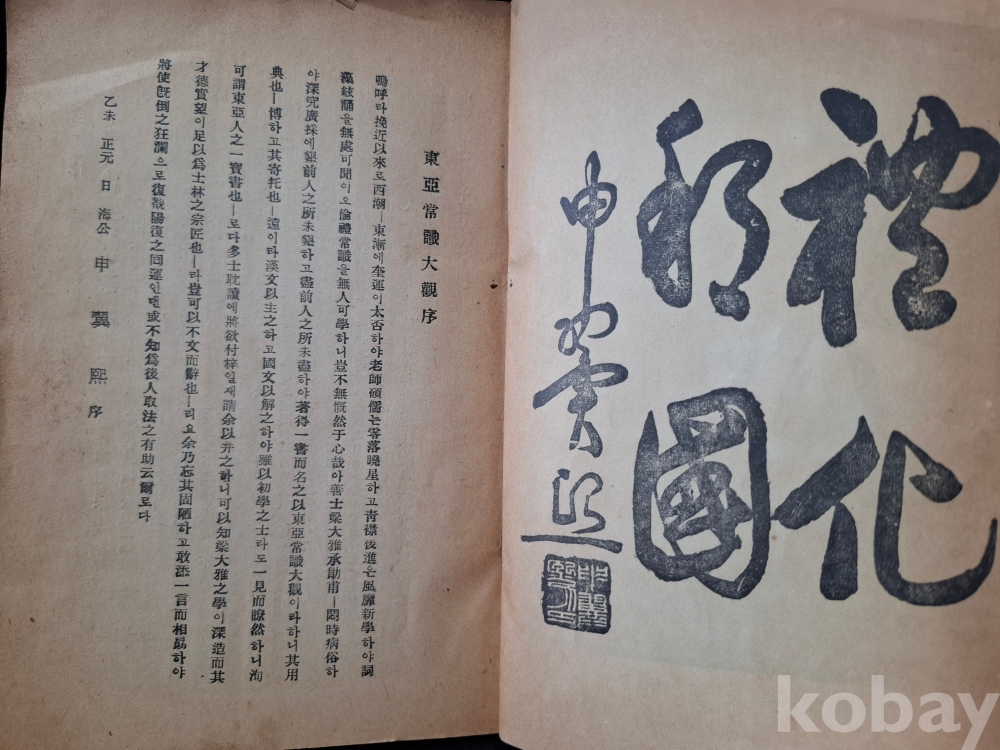 禮化
國
申翼熙
東亞常識大觀序
嗚呼라挽近以來로西潮ㅣ東漸에奎運이太否하야老師碩儒는零落曉星하고靑襟後進은風靡新學하야詞
藻絃誦을無處可聞이오倫禮常識을無人可學하니豈不無慨然于心哉아善士梁大雅承勛甫ㅣ悶時病俗하
야深究廣採에墾前人之所未墾하고盡前人之所未盡하야著得一書而名之以東亞常識大觀이라하니其用
典也ㅣ博하고其寄托也ㅣ遠이라漢文以主之하고國文以解之하야雖以初學之士라도一見而瞭然하니洵
可謂東亞人之一寶書也ㅣ로다多士耽讀에將欲付梓일새請余以弁之하니可以知梁大雅之學이深造而其
才德實望이足以爲士林之宗匠也ㅣ라豈可以不文而辭也ㅣ리요余乃忘其固陋하고敢添一言而相勗하야
將使旣倒之狂瀾으로復觀陽復之回運인댄或不知爲後人取法之有助云爾로다
乙未 正元 日 海公 申翼熙 序
kobay